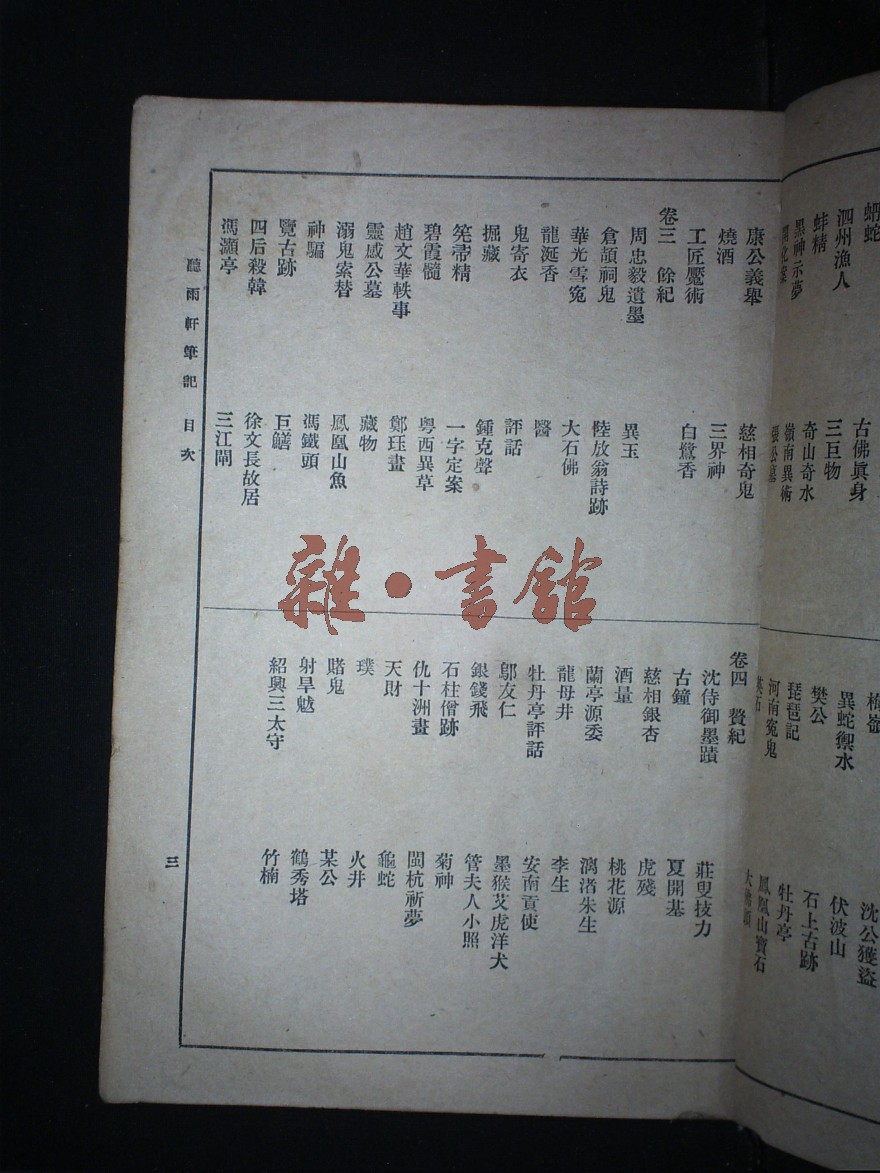 蚺蛇
泗州漁人
蚌精
墨神示夢
古佛眞身
三巨物
奇山奇水
嶺南異術
張公墓
梅嶺
異蛇禦水
樊公
琵琶記
河南寃鬼
英石
沈公獲盜
伏波山
石上古跡
牡丹亭
鳳凰山寶石
康公義舉
燒酒
工匠魘術
卷三 餘紀
周忠毅遺墨
倉頡祠鬼
華光雪寃
龍涎香
鬼寄衣
掘藏
筅帚精
碧霞髓
趙文華軼事
靈感公墓
溺鬼索替
神騙
覽古跡
四后殺韓
馮灝亭
慈相奇鬼
三界神
白鷺香
異玉
陸放翁詩跡
大石佛
醫
評話
鍾克聲
一字定案
粵西異草
鄭玨畫
藏物
鳳凰山魚
馮鐵頭
巨鱔
徐文長故居
三江閘
卷四 贅紀
沈侍御墨蹟
古鐘
慈相銀杏
酒量
蘭亭源委
龍母井
牡丹亭評話
鄔友仁
銀錢飛
石柱僧跡
仇十洲畫
天財
璞
賭鬼
射旱魃
紹興三太守
莊叟技力
夏開基
虎殘
桃花源
漓渚朱生
李生
安南貢使
墨猴艾虎洋犬
管夫人小照
菊神
閩杭祈夢
龜蛇
火井
某公
鶴秀塔
竹楠
聽雨軒筆記 目次
三
雜·書館